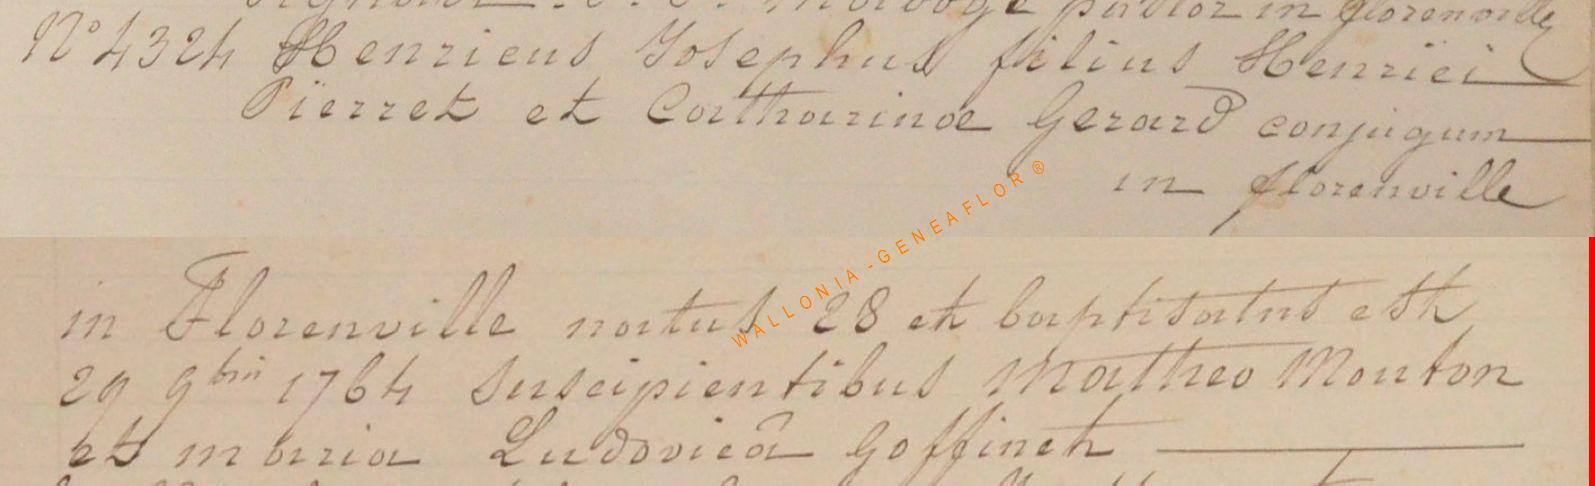 pastor in florenville
N° 4324 Henricus Josephus filius Henrici
Pierret et Catharinae Gerard conjugum
in florenville
WALLONIA - GENEAFLOR ®
in Florenville natus 28 et baptisatus est
29 9bris 1764 suscipientibus Matheo Mouton
et maria Ludovicâ Goffinet